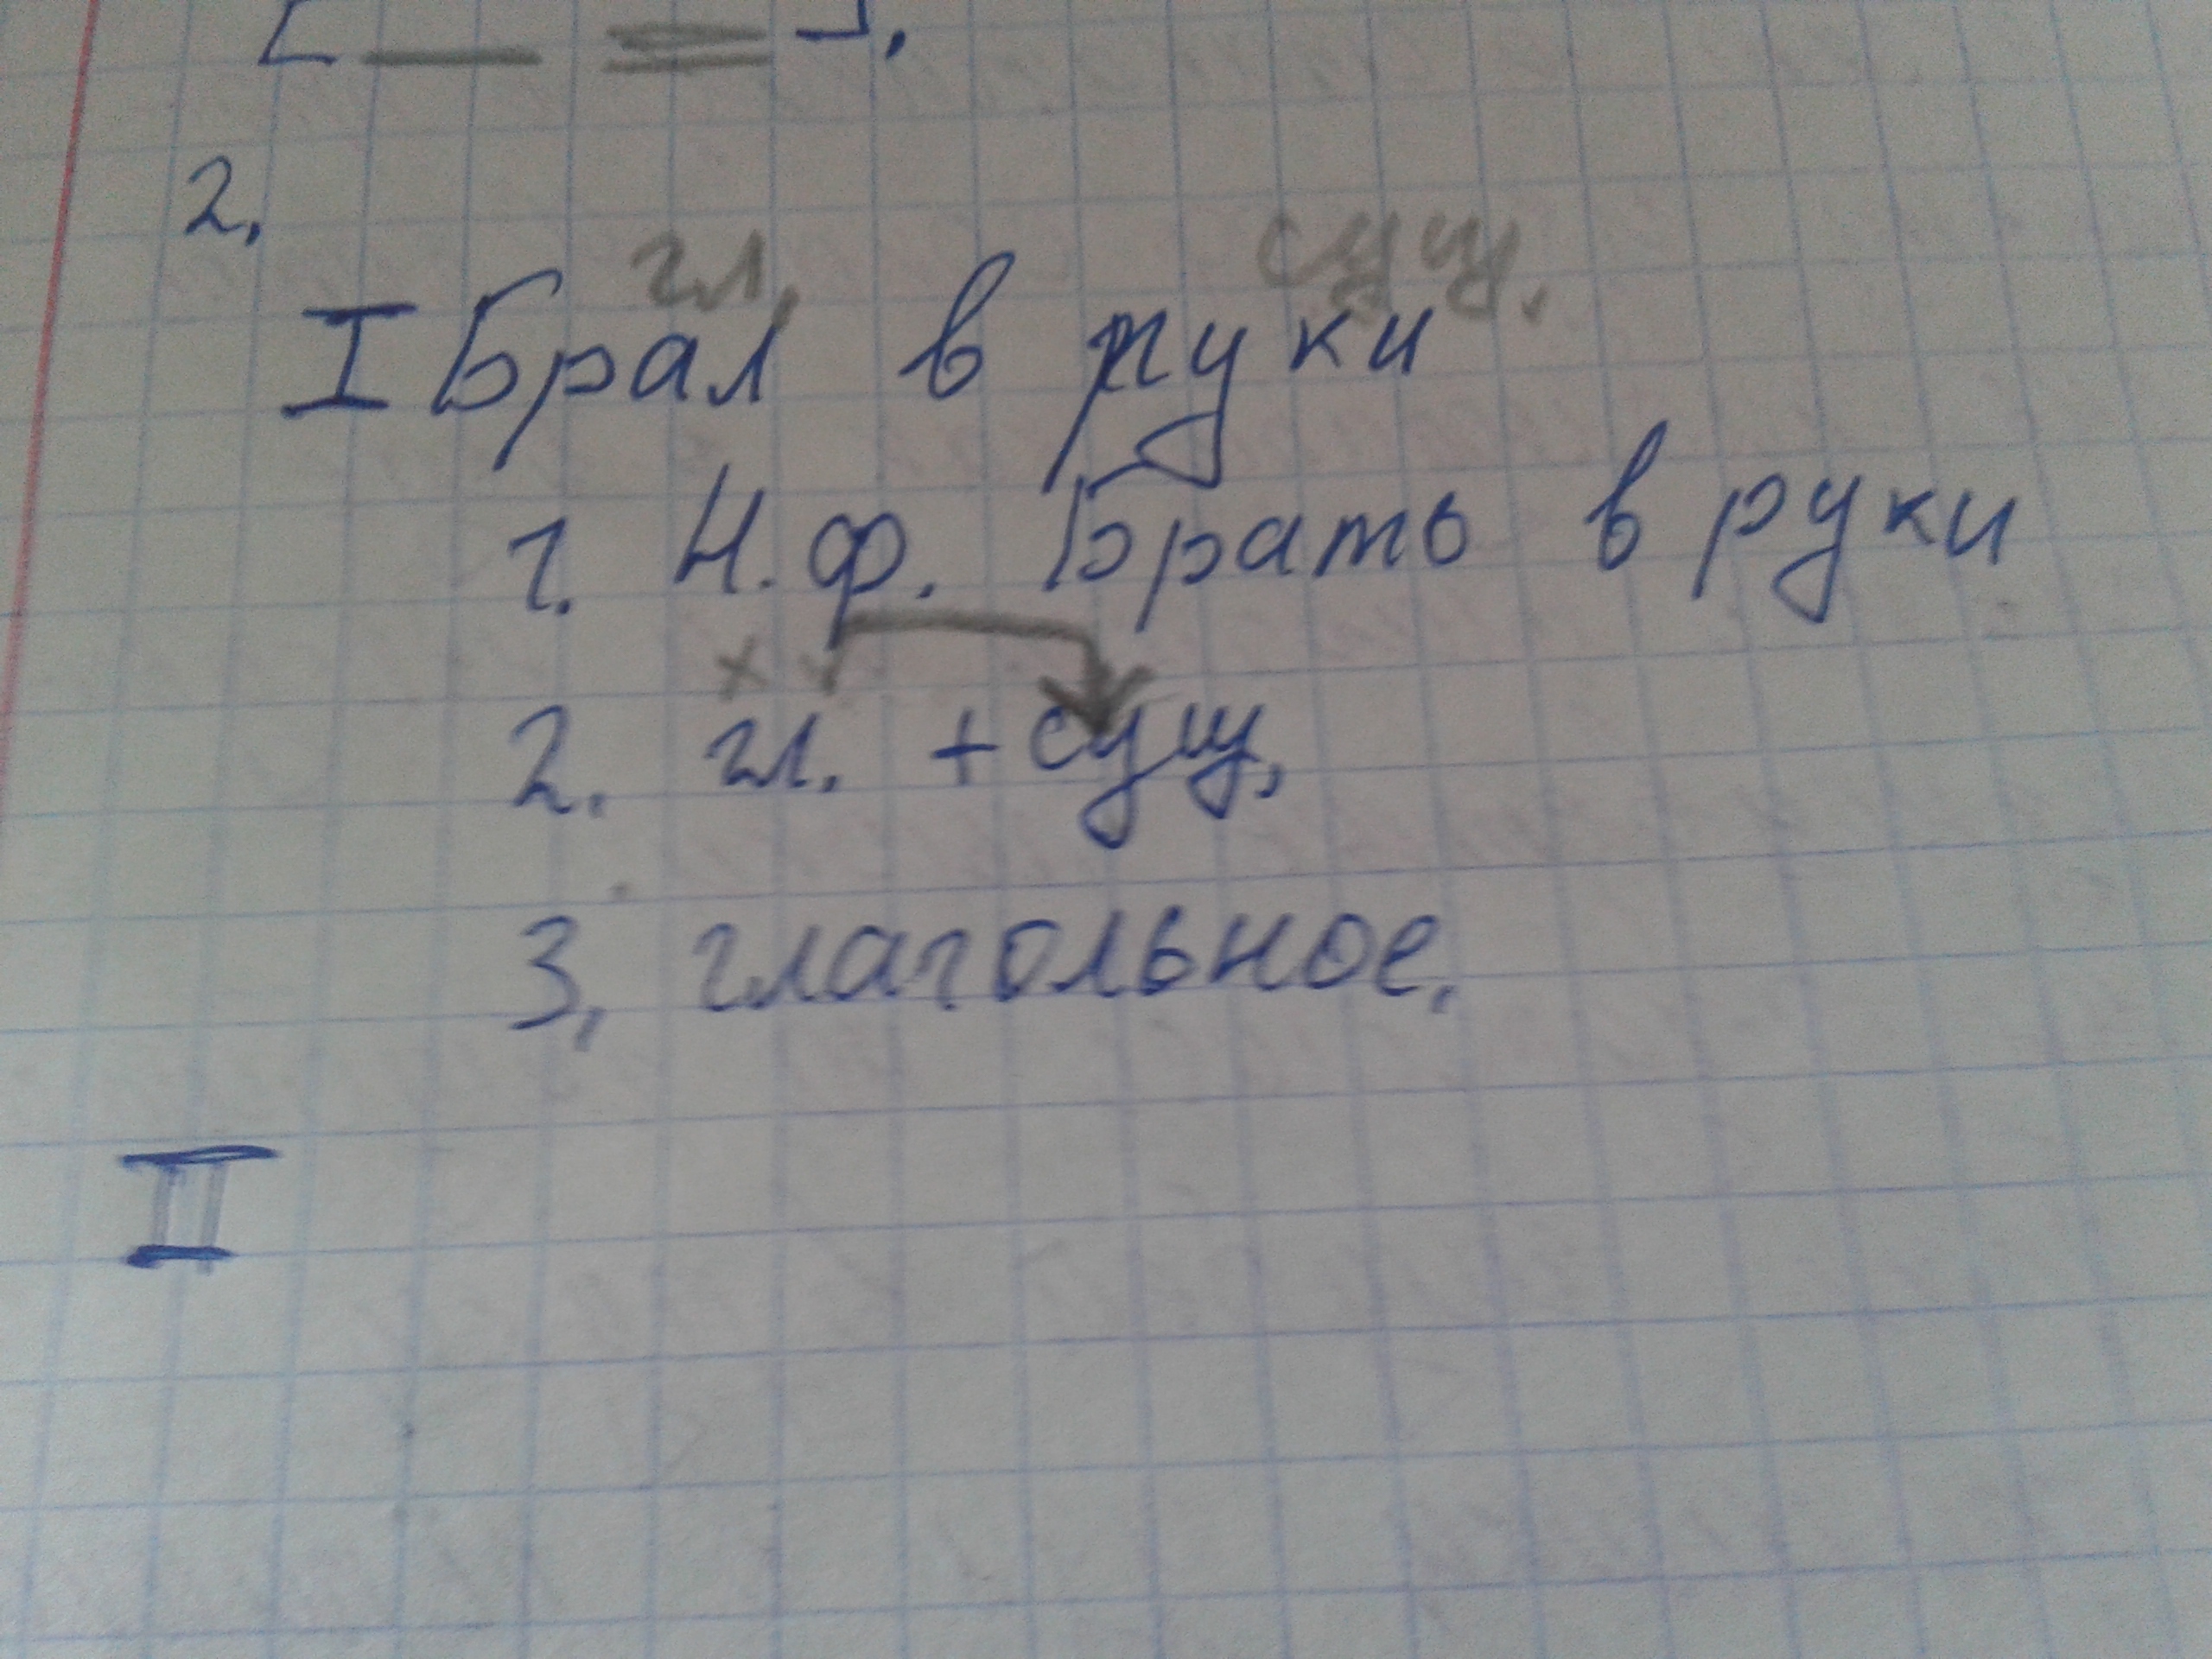 [ ].
2.
гл. сущ.
I Брал в руки
1. Н.ф. Брать в руки
х
2. гл. + сущ.
3. глагольное.
II